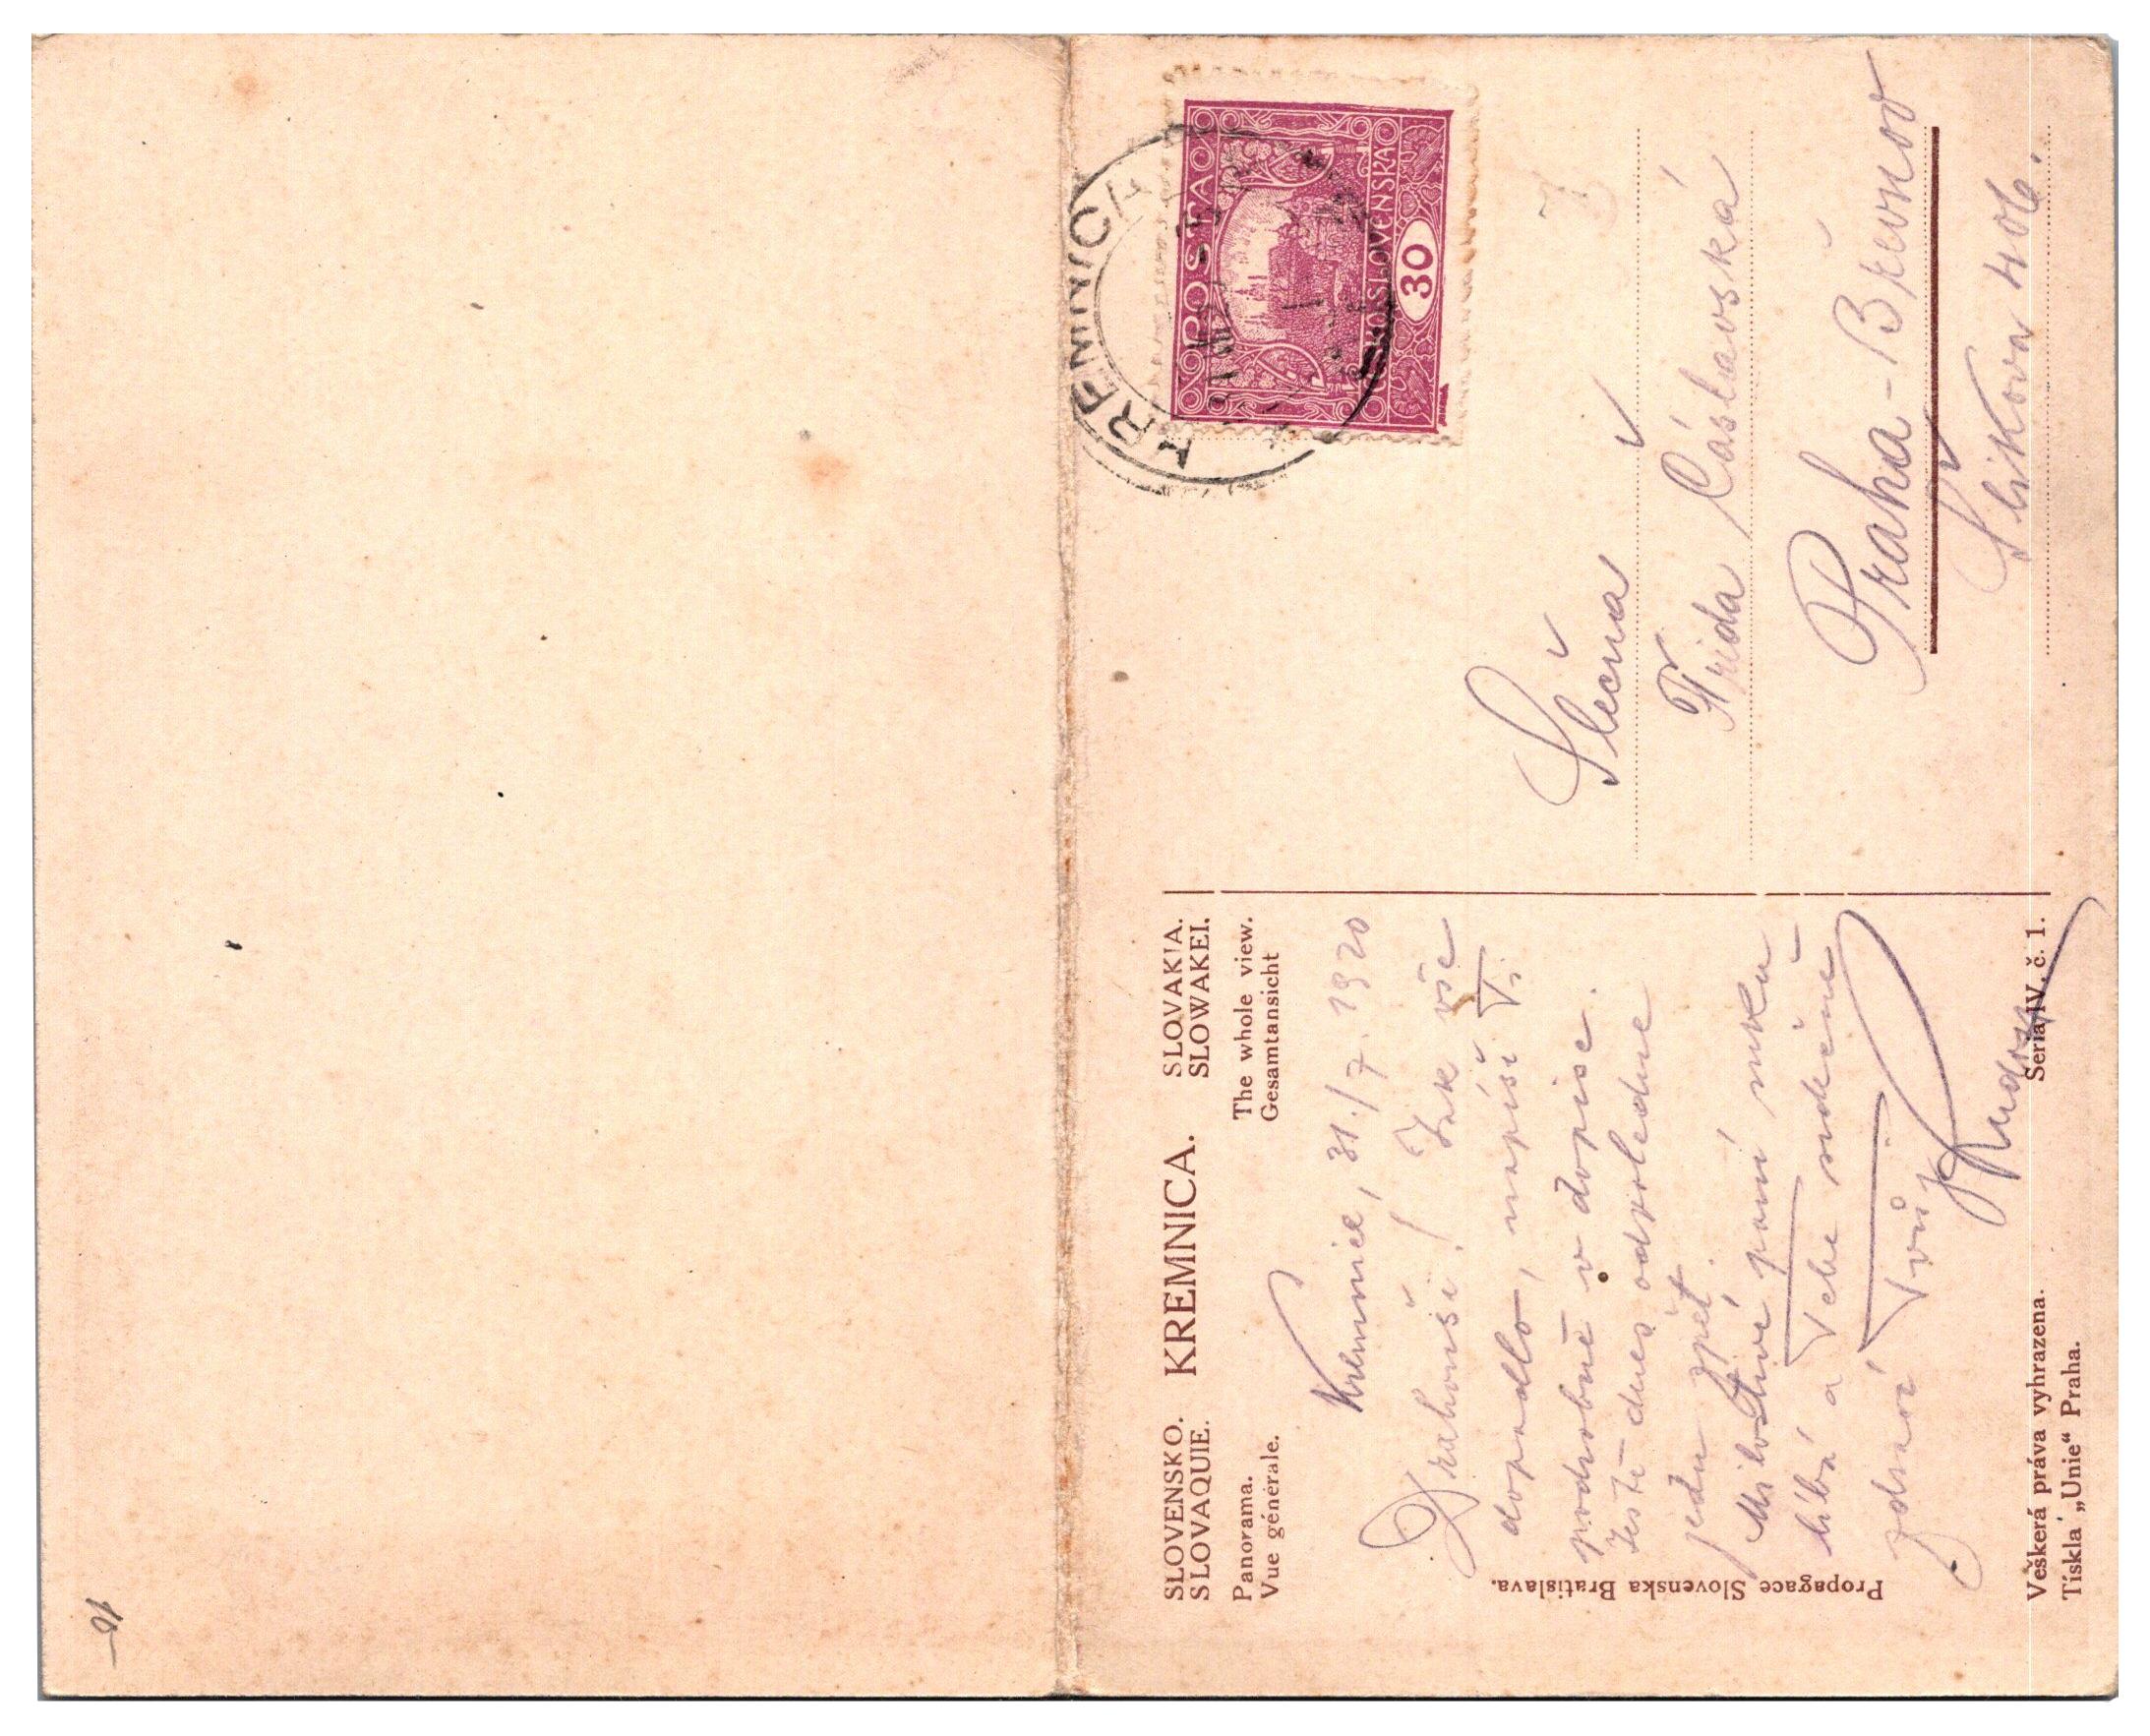 SLOVENSKO. KREMNICA. SLOVAKIA.
SLOVAQUIE. SLOWAKEI.
Panorama. The whole view.
Vue générale. Gesamtansicht
Kremnice, 31./7. 1920
Drahouši! Jak vše
dopadlo, napíši Ti
podrobně v dopise.
Ještě dnes odpoledne
jedu zpět.
Milostivé paní ruku
líbá a Tebe srdečně
zdraví Tvůj
Propagace Slovenska Bratislava.
Veškerá práva vyhrazena. Seria IV. č. 1.
Tiskla „Unie“ Praha.
KREMNICA
POŠTA
ČESKOSLOVENSKÁ
30
Slečna
Frída Čáslavská
Praha-Břevnov
Šlikova 406.
10